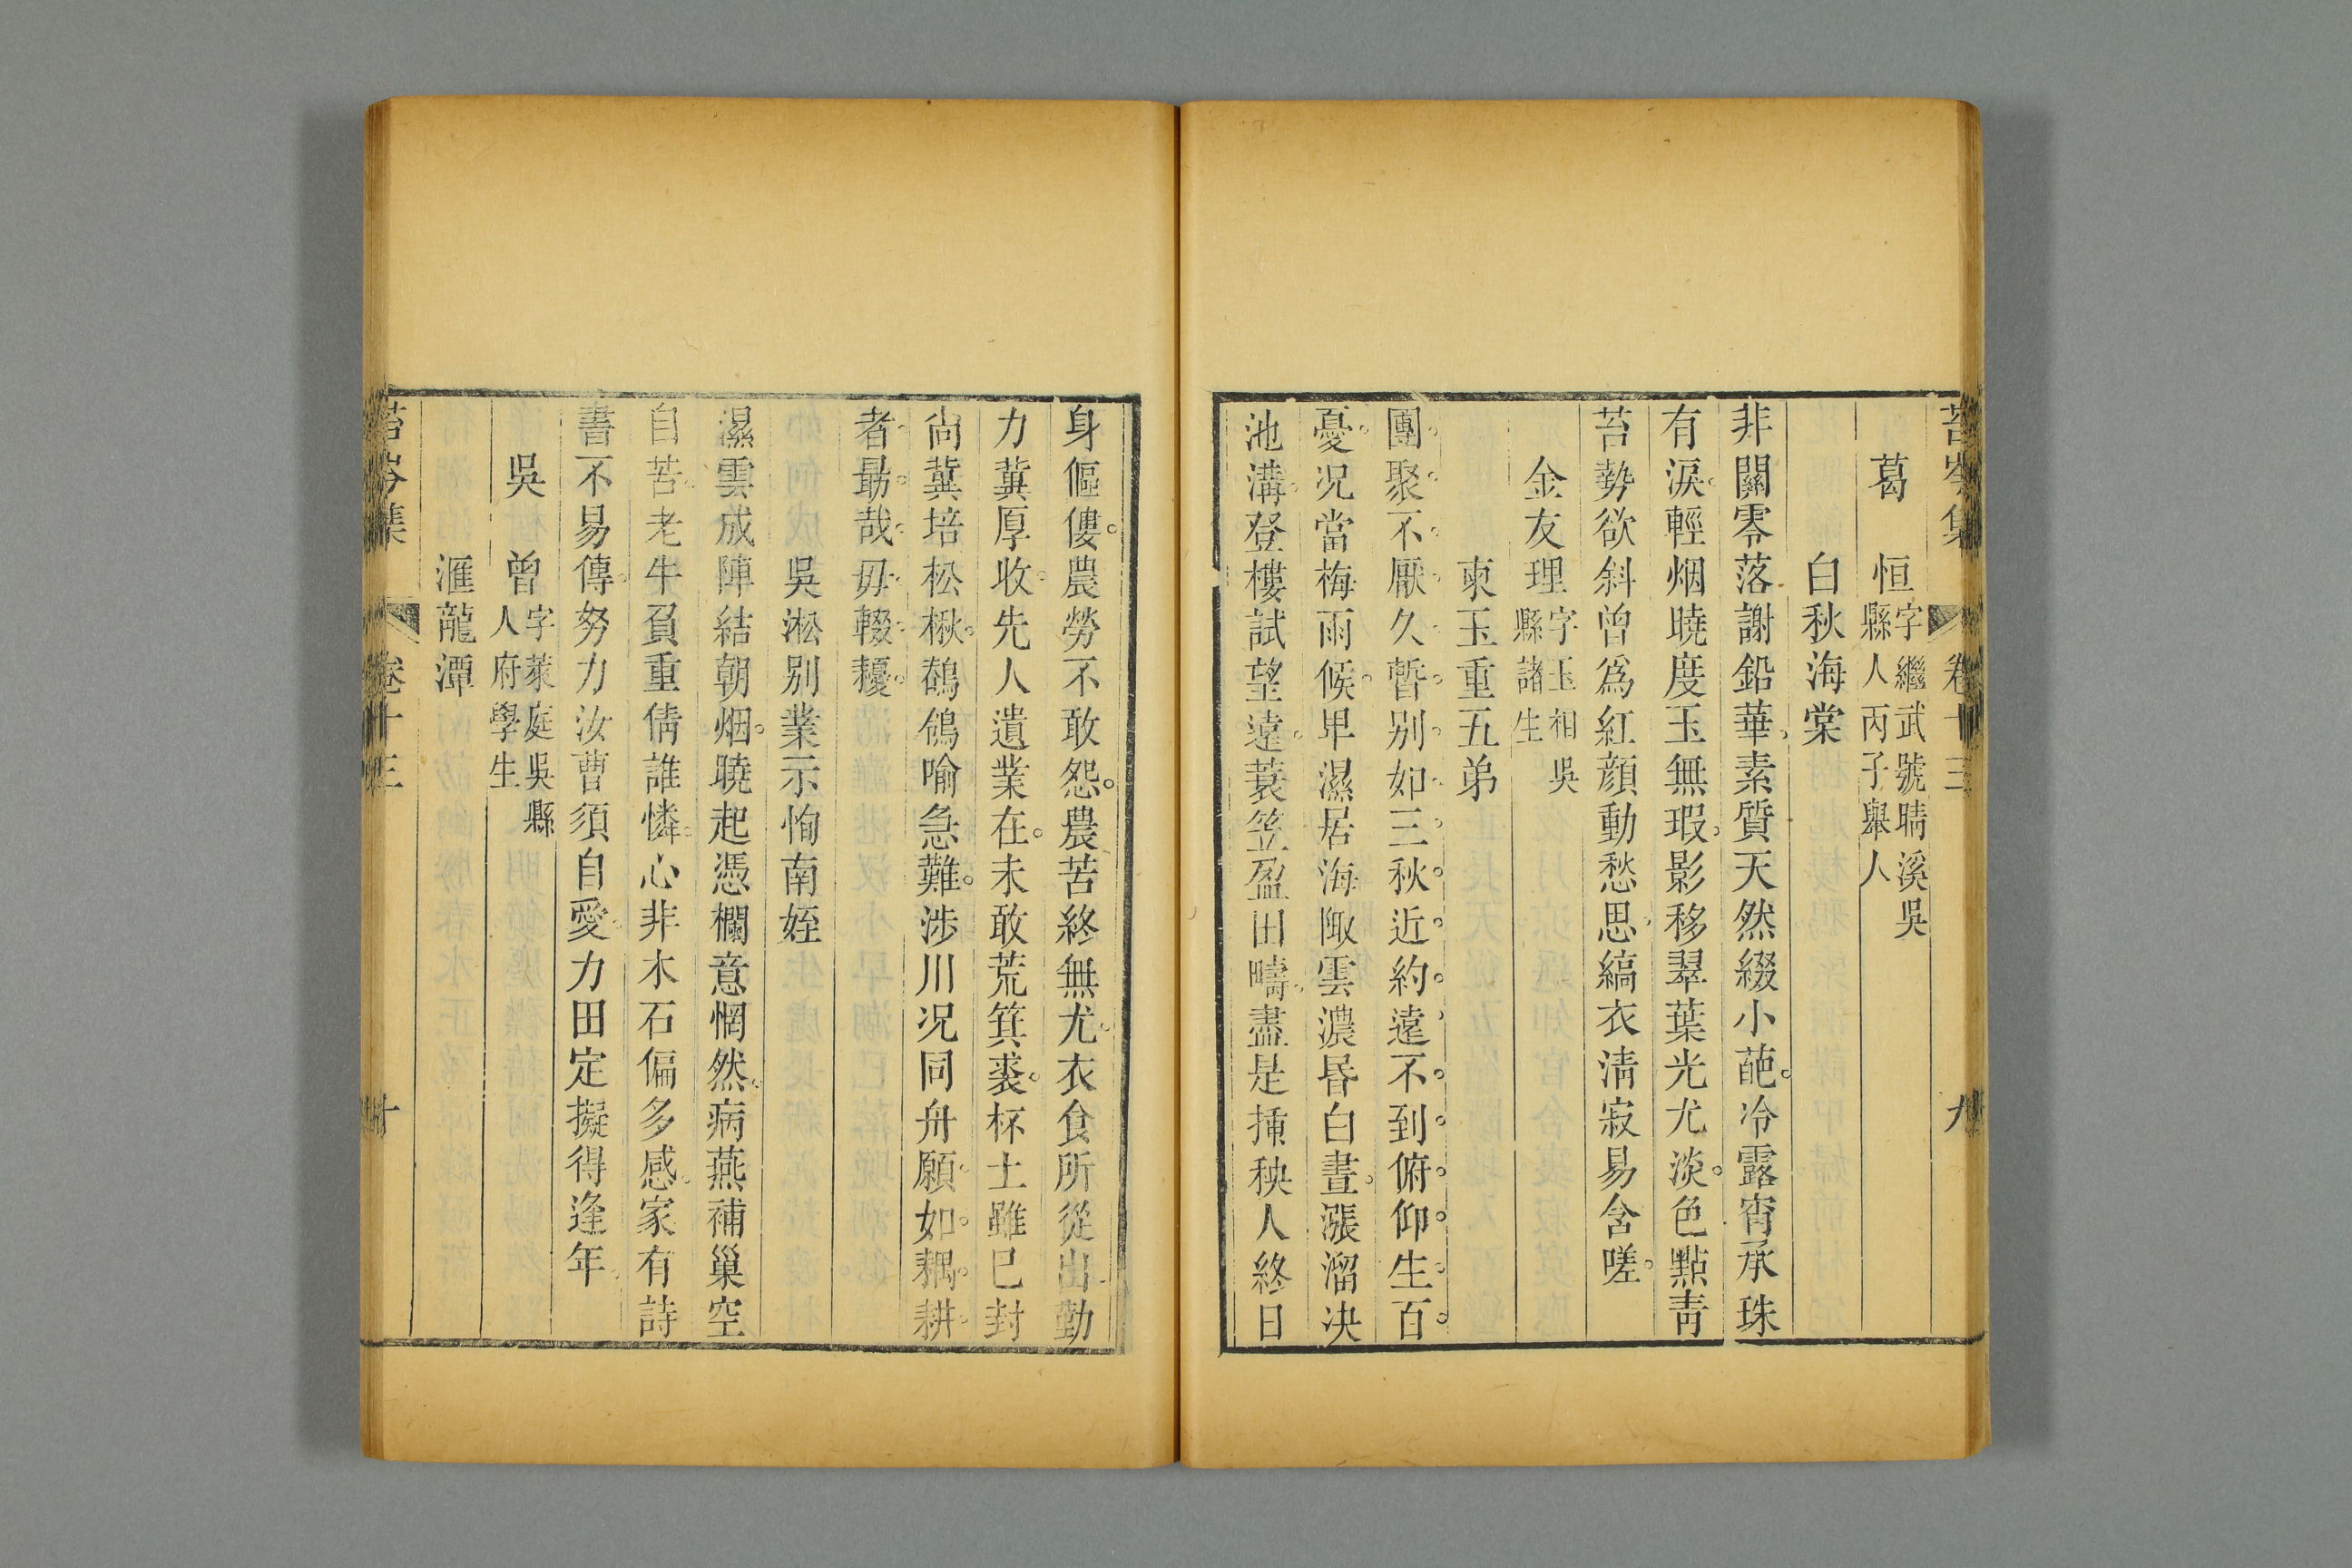 苔岑集 卷十三 九
葛 恒 字繼武號晴溪吳
縣人丙子舉人
白秋海棠
非關零落謝鉛華素質天然綴小葩冷露宵承珠
有淚輕烟曉度玉無瑕影移翠葉光尤淡色點青
苔勢欲斜曾爲紅顏動愁思縞衣清寂易含嗟
金友理 字玉相吳
縣諸生
柬玉重五弟
團聚不厭久暫别如三秋近約遠不到俯仰生百
憂况當梅雨候卑濕居海陬雲濃昏白晝漲溜決
池溝登樓試望遠蓑笠盈田疇盡是揷秧人終日
身傴僂農勞不敢怨農苦終無尤衣食所從出勤
力冀厚收先人遺業在未敢荒箕裘杯土雖已封
尙冀培松楸鶺鴒喻急難涉川况同舟願如耦耕
者最哉毋輟耰
吳淞别業示恂南姪
濕雲成陣結朝烟曉起憑欄意惘然病燕補巢空
自苦老牛負重倩誰憐心非木石偏多感家有詩
書不易傳努力汝曹須自愛力田定擬得逢年
吳 曾 字萊庭吳縣
人府學生
滙龍潭
苔岑集 卷十三 十